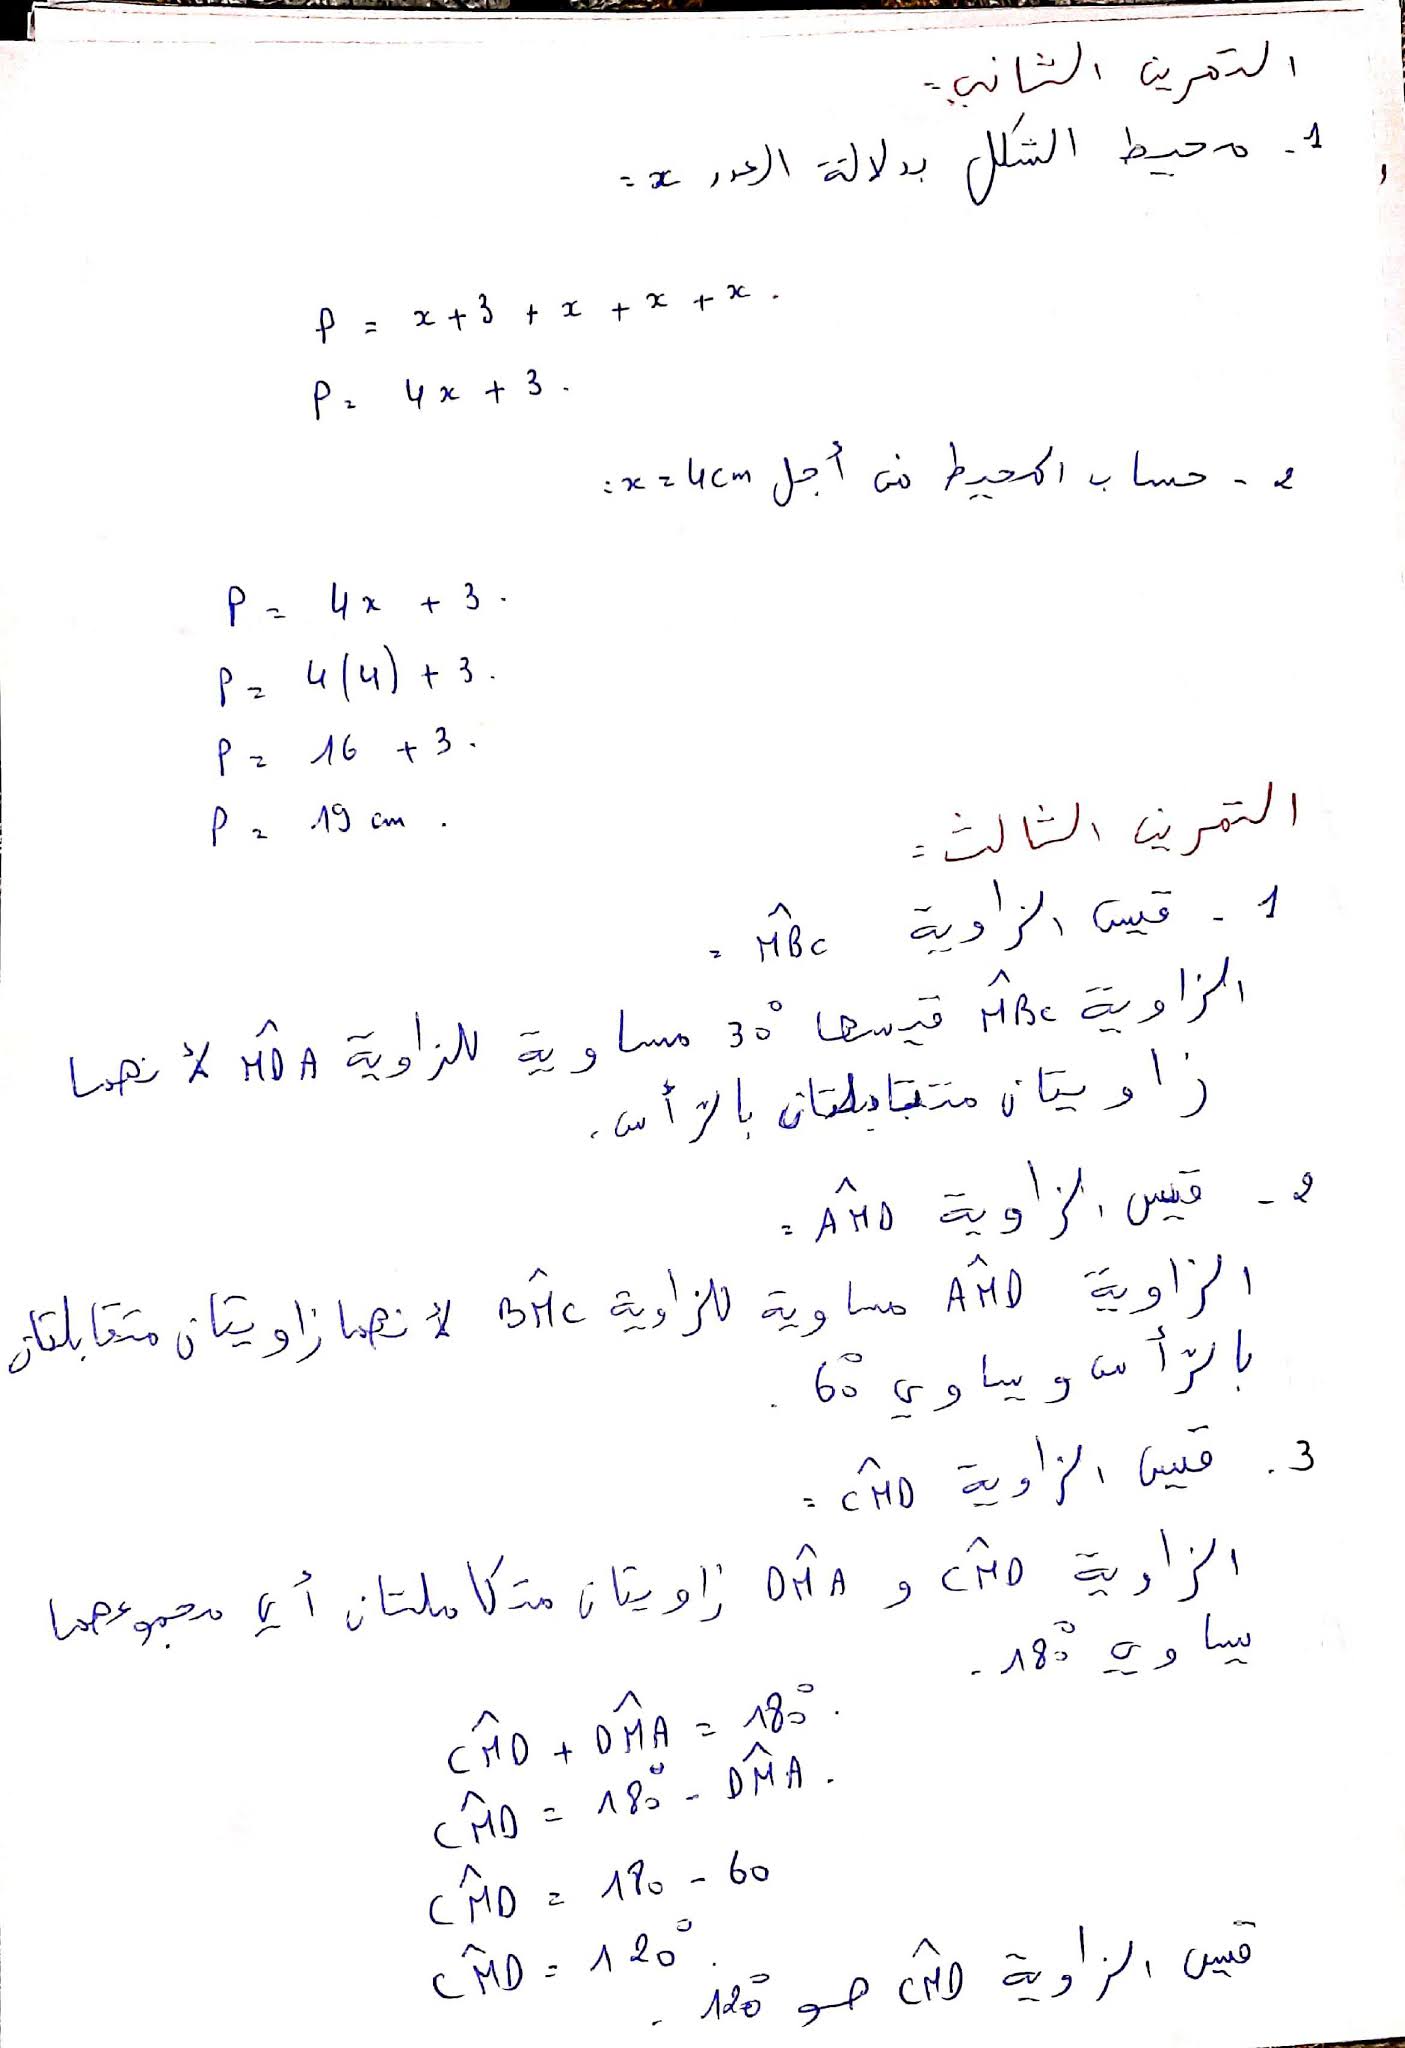 التمرين الثاني =
1 - محيط الشكل بدلالة العدد x =
P = x + 3 + x + x + x .
P = 4x + 3 .
2 - حساب المحيط من أجل x = 4 cm :
P = 4x + 3 .
P = 4(4) + 3 .
P = 16 + 3 .
P = 19 cm .
التمرين الثالث =
1 - قيس الزاوية MB̂C =
الزاوية MB̂C قيسها 30° مساوية للزاوية MD̂A لأنهما
زاويتان متقابلتان بالرأس .
2 - قيس الزاوية AM̂D =
الزاوية AM̂D مساوية للزاوية BM̂C لأنهما زاويتان متقابلتان
بالرأس ويساوي 60° .
3 . قيس الزاوية CM̂D =
الزاوية CM̂D و DM̂A زاويتان متكاملتان أي مجموعهما
يساوي 180° .
CM̂D + DM̂A = 180° .
CM̂D = 180° - DM̂A .
CM̂D = 180 - 60
CM̂D = 120° .
قيس الزاوية CM̂D هو 120° .